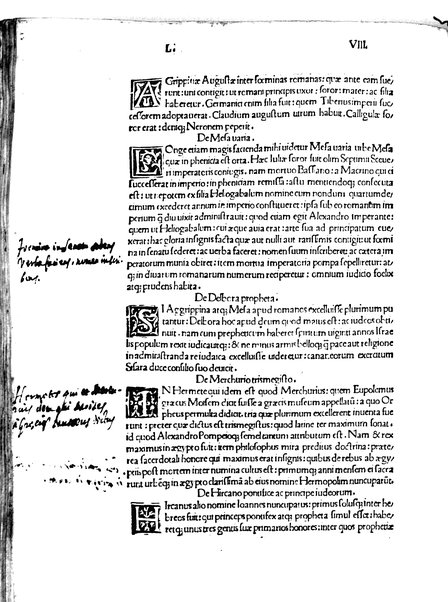 Li VIII.
AGrippinæ Augustæ inter fœminas romanas: quæ ante eam fue/
runt: uni contigit: ut romani principis uxor: soror: mater: ac filia
haberetur. Germanici enim filia fuit: quem Tiberius imperii suc/
cessorem adoptauerat. Claudium augustum uirum habuit. Calligulæ so/
ror erat: deniq; Neronem peperit.
De Mesa uaria.
LOnge etiam magis facienda mihi uidetur Mesa uaria urbe Mesa
quæ in phenicia est orta. Hæc Iuliæ soror fuit olim Septimii Seue/
ri imperatoris coniugis. nam mortuo Bassiano: a Macrino qui ei
successerat in imperio: in pheniciam remissa: astu meruendoq; consecuta
est: ut nepotem ex filia Heliogabalum nomine cum nondum quartumde/
cimum excederet annum in imperio constitueret: ipsa sub eo romanum im
perium q̃ diu uixit administrauit: quod etiam egit Alexandro imperante:
quem ut Heliogabalum: cui æque auia erat: arte sua ad principatum eue/
xerat: hac gloria insignis facta quæ aut nulli aut rarissimis contigit: ut fœmi
na in senatu sederet: ac uerba faceret: nomen suum inscriberet: ac cætera im
peratorum munia obiret: item mortua imperatoria pompa sepeliretur: at/
q; in diuarum romanarum numerum reciperetur: omnium iudicio fœlix
atq; prudens habita.
De Delbora propheta.
SI Aggrippina atq; Mesa apud romanos excelluisse plurimum pu
tantur: Delbora hoc apud deum quod maius est: ac iudeos obti/
nuit. nam cum prophetiæ haberet spiritum uiginti annos Israe
lis populum rexit iudicauitq;: & ne minus armis belloq; q̃ pace aut religione
in administranda re iudaica excelluisse uideretur: cananeorum exercitum
Sisara duce consilio suo deuicit.
De Merchurio trismegisto.
IN Hermete qui idem est quod Merchurius: quem Eupolemus
græcus Mosem dicit fuisse a græcis museum appellatum: a quo Or
pheus permulta didicit. tria quæ plurimum excellerent inuenta fue
runt: propter quæ dictus est trismegistus: quod latine ter maximum sonat.
id quod Alexandro Pompeioq; semel tantum attributum est. Nam & rex
maximus in ægypto fuit: item philosophus mira preditus doctrina: præte/
rea sacerdotali honore qui maximus erat insignis: quibus de rebus ab ægy/
ptiis post mortem inter numina cultus est: primumq; anni mensem ei sacra
runt urbemq; in ægypto clarissimam ab eius nomine Hermopolim nuncuparunt.
De Hircano pontifice ac principe iudeorum.
HIrcanus alio nomine Ioannes nuncupatus: primus solusq; inter he
breos fuit: qui princeps pontifex atq; propheta simul esset: habe/
retq; unus tres gentis suæ primarios honores: inter quos prophetiæ